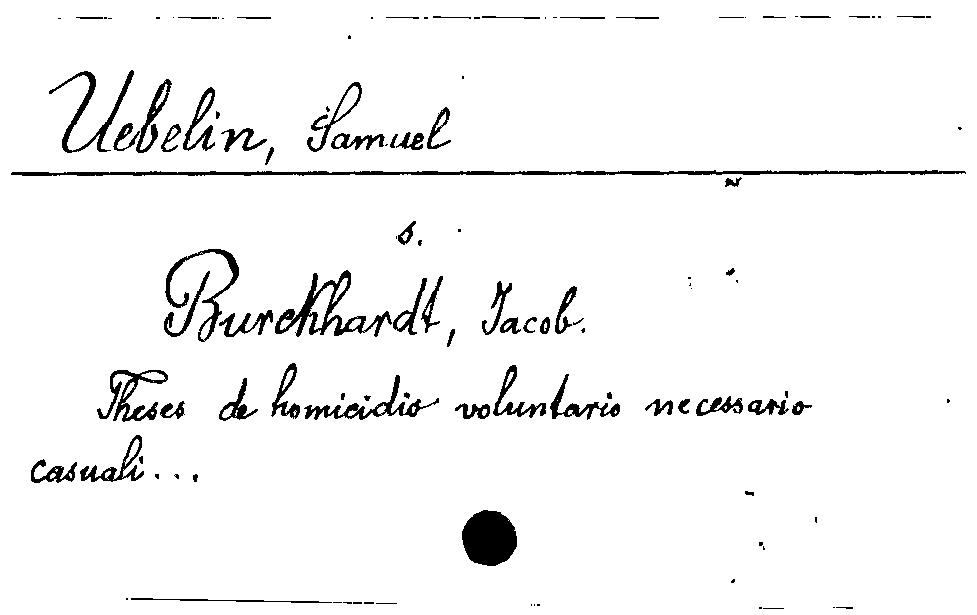 Uebelin, Samuel
s.
Burckhardt, Jacob.
Theses de homicidio voluntario necessario
casuali...